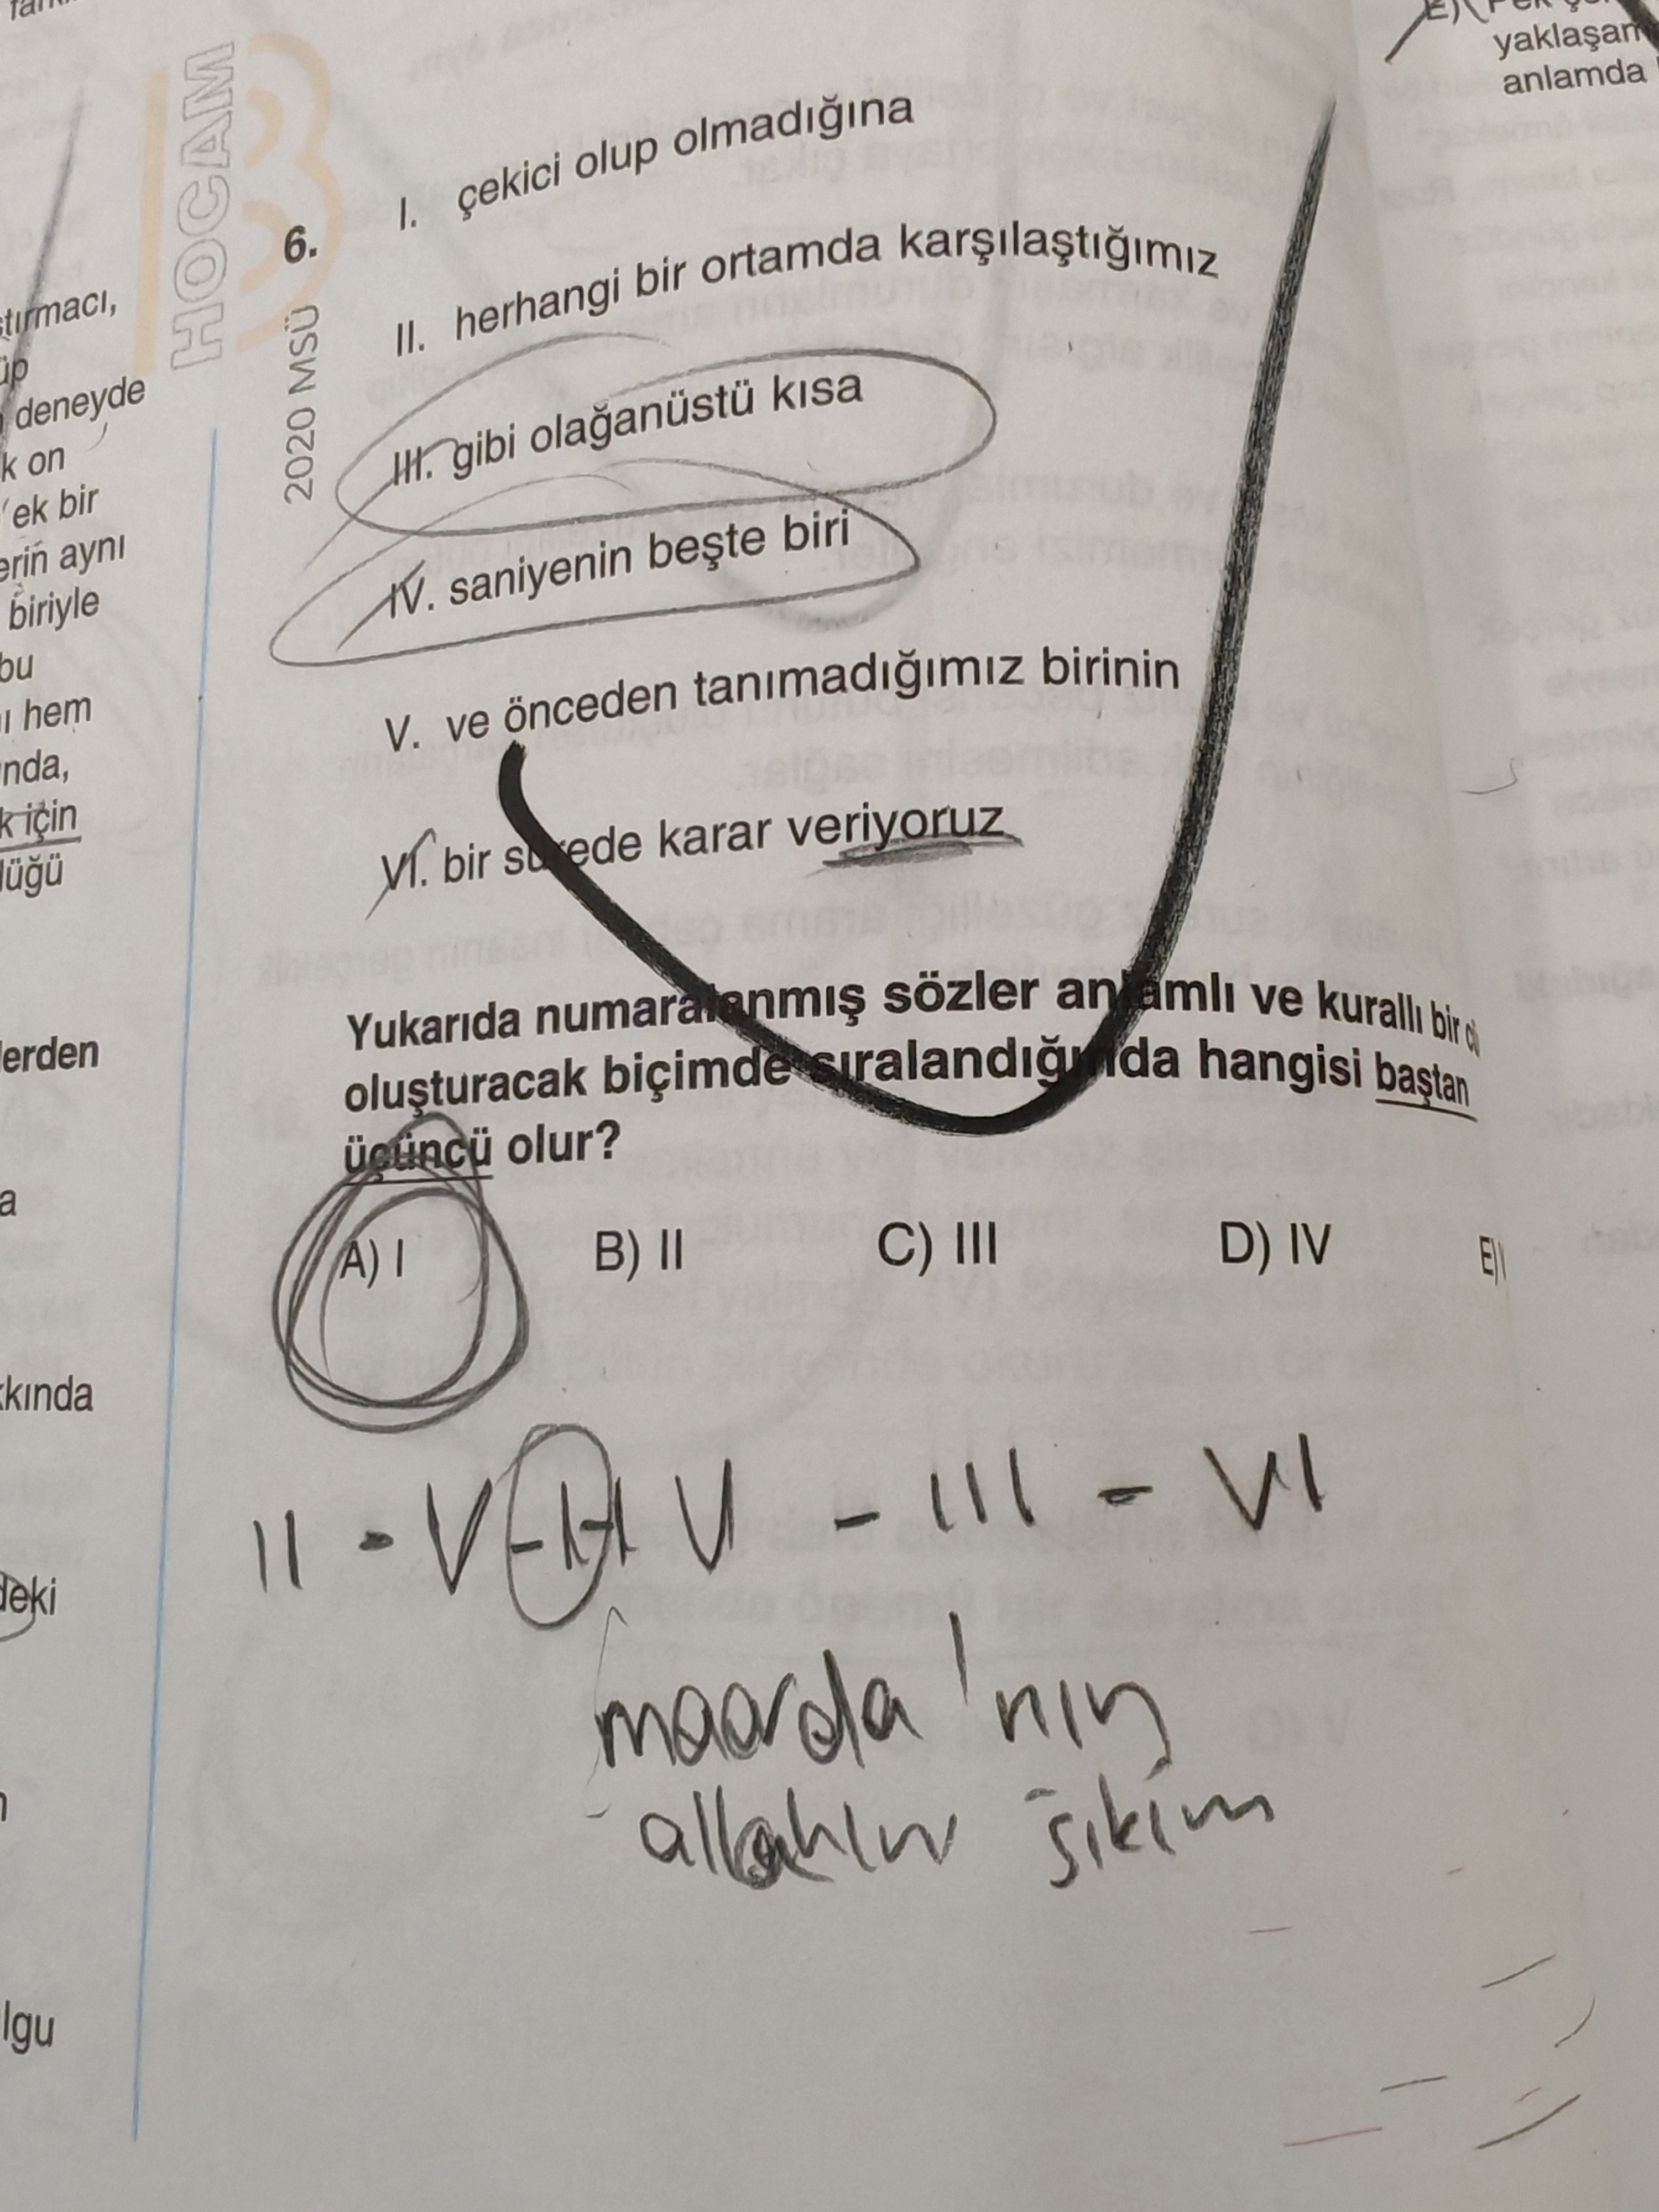 HOCAM
tırmacı,
deneyde
k on
ek bir
erin aynı
biriyle
bu
ı hem
nda,
k için
lüğü
lerden
a
kkında
deki
lgu
yaklaşan
anlamda
2020 MSÜ
6.
I. çekici olup olmadığına
II. herhangi bir ortamda karşılaştığımız
III. gibi olağanüstü kısa
IV. saniyenin beşte biri
V. ve önceden tanımadığımız birinin
VI. bir sürede karar veriyoruz
Yukarıda numaralanmış sözler anlamlı ve kurallı bir
oluşturacak biçimde sıralandığında hangisi baştan
üçüncü olur?
A) I B) II C) III D) IV E)
II - V - I - IV - III - VI
allahın